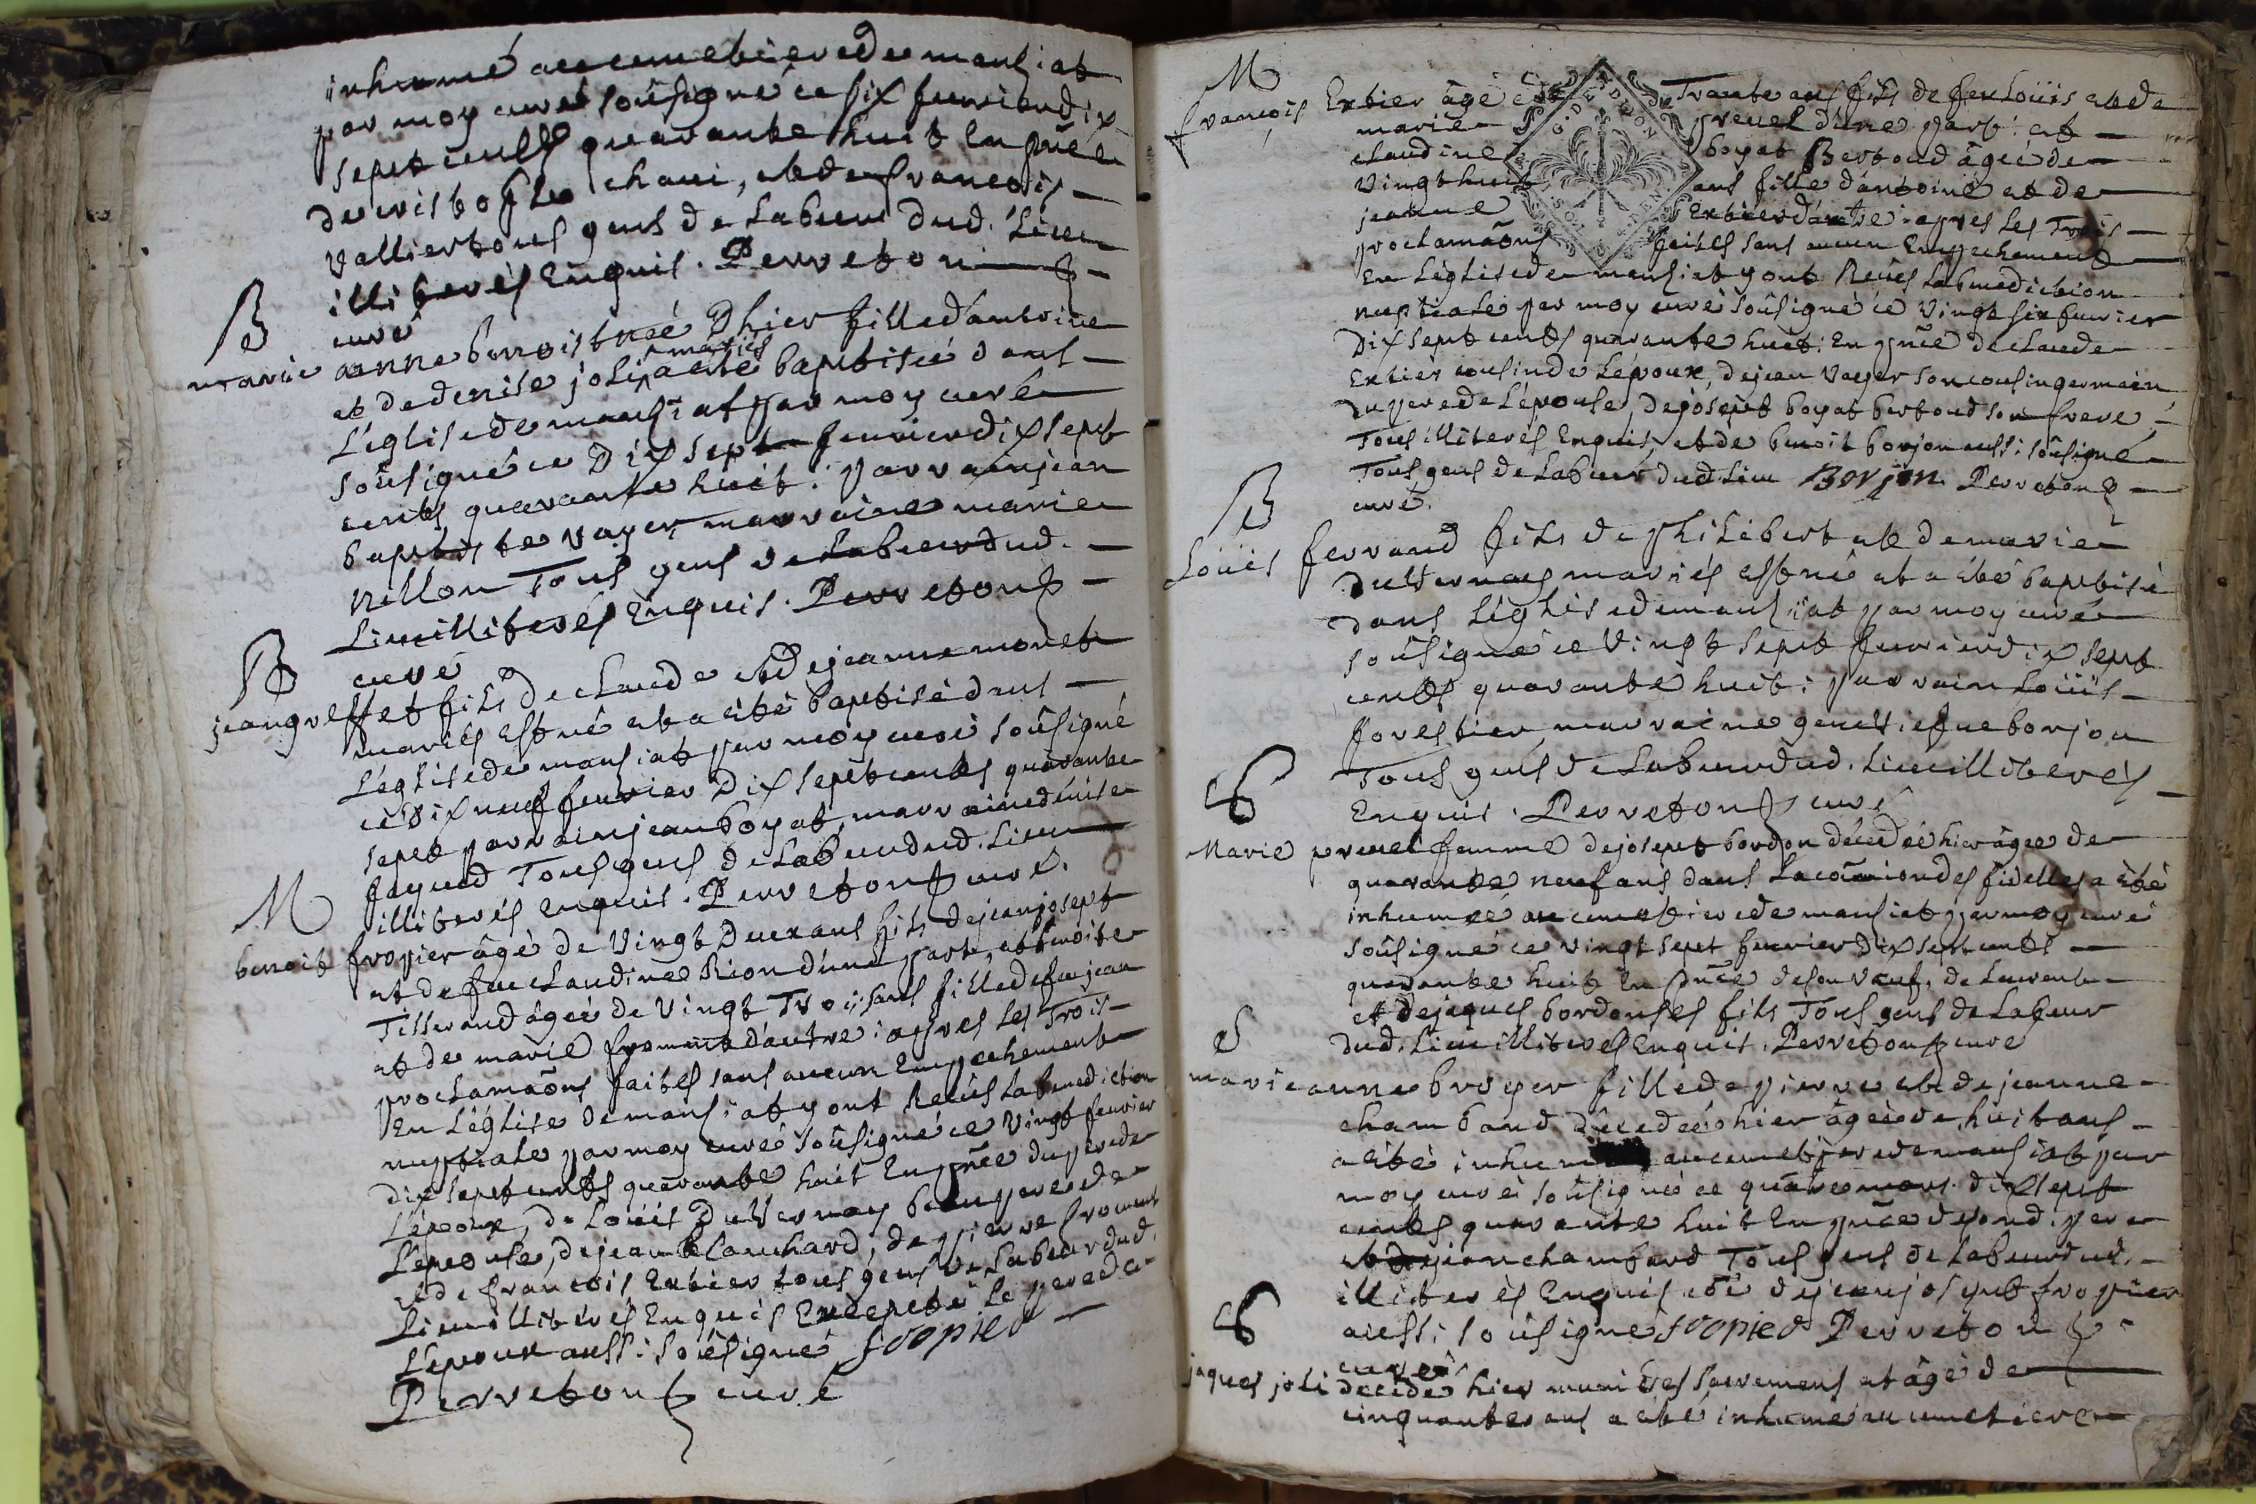 inhumé au cemetiere de mansiat
par moy curé soûsigné ce six feuvier dix
sept cents quarante huit En pñce
de cristofle chani, et de francois
Vallier tous gens de Labeur dud. Lieu
illiterés Enquis. Perreton
curé
B
marie anne benoist née D'hier fille d'antoine
et de denise joli mariés a eté baptisée dans
L'églisede mansiat par moy curé
soûsigné ce Dix sept feuvrier dix sept
cents quarante huit: parrain jean
baptiste Vayer, marraine marie
Nillon Tous gens de Labeur dud.
Lieu illiterés Enquis. Perreton
curé
B
jean greffet fils De claude et de jeanne moret
mariés est né et a été baptisé dans
L'églisede mansiat par moy curé soûsigné
ce Dix neuf feuvrier Dix sept cents quarante
sept parrain jean boyat, marraine denise
feyeud Tous gens de Labeur dud. Lieu
illiterés enquis. Perreton curé.
M
benoit fropier âgé de Vingt Deux ans fils de jean josept
et de feu claudine Rion d'une part, et benoite
Tisserand âgée de Vingt Trois ans fille de feu jean
et de marie froment d'autre: apres les trois
proclamaõns faites sans aucun Empechement
En L'église de mansiat y ont Recûs La benediction
nuptiale par moy curé soûsigné ce Vingt feuvrier
dix sept cents quarante huit En pñce du pere de
L'époux, de Loüis DuVernay beaupere de
L'épouse, de jean blanchard, de pierre froment
et de francois Extier tous gens de Labeur dud.
Lieu illiterés Enquis Excepté Le pere de
L'époux aussi soûsigné fropier
Perreton curé
M
françois Extier âgé de Trante ans fils de feu Loüis et de
marie prevel d'une part: et
claudine boyat Bertoud âgée de
Vingt huit ans fille d'antoine et de
jeanne Extier d'autre: apres Les Trois
proclamaõns faites sans aucun Empechement
En L'église de mansiat y ont Recûs La benediction
nuptiale par moy curé soûsigné ce Vingt six feuvier
Dix sept cents quarante huit: En pñce de claude
Extier cousin de L'époux, de jean Vayer son cousin germain
du pere de L'épouse, de josept boyat bertoud son frere
Tous illiterés Enquis, et de benoit borjon aussi soûsigné
Tous gens de Labeur dud. Lieu Borjon. Perreton
curé.
B
Loüis ferrand fils de philibert et de marie
DuVernay mariés est né et a été baptisé
dans L'église de mansiat par moy curé
soûsigné ce Vingt sept feuvrier dix sept
cents quarante huit: parrain Loüis
forestier marraine geneviefue borjon
Tous gens de Labeur dud. Lieu illiterés
Enquis. Perreton curé
S
Marie prevel femme de josept bordon décedée hier âgée de
quarante neuf ans dans La cõmion des fidelles a été
inhumée au cemetiere de mansiat par moy curé
soûsigné ce vingt sept feuvrier dix sept cents
quarante huit En pñce de son veuf, de Laurent
et de jaques bordon ses fils Tous gens de Labeur
dud. Lieu illiterés Enquis. Perreton curé
S
marie anne broyer fille de pierre et de jeanne
chamband Décedée hier âgée de huit ans
a été inhumée au cemetiere de mansiat par
moy curé soûsigné ce quatre mars dix sept
cents quarante huit En pñce de son d. pere
et de jean chambard Tous gens de Labeur dud.
illiterés Enquis de jean josept fropier
aussi soûsigné fropier Perreton
curé
S
jaques joli decedé hier muni des sacremens et âgé de
cinquante ans a eté inhumé au cemetiere
G. DE DIJON